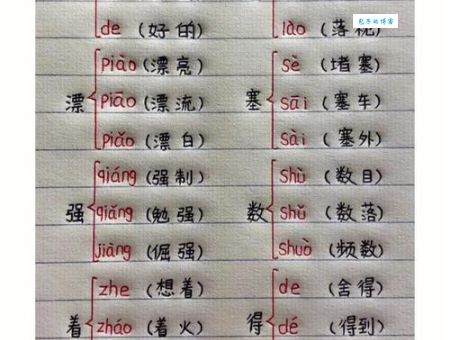 de (好的) lào (落枕)
漂 piào (漂亮)
piāo (漂流)
piǎo (漂白)
塞 sè (堵塞)
sāi (塞车)
sài (塞外)
强 qiáng (强制)
qiǎng (勉强)
jiàng (倔强)
数 shù (数目)
shǔ (数落)
shuò (频数)
着 zhe (想着)
zháo (着火)
得 de (舍得)
dé (得到)